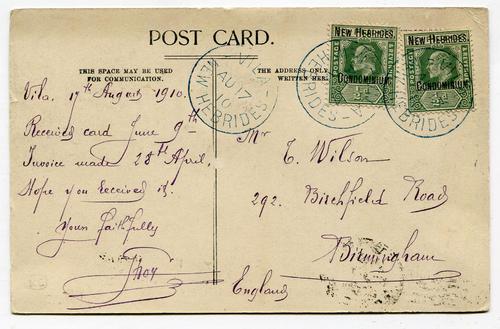 POST CARD.
THIS SPACE MAY BE USED
FOR COMMUNICATION.
THE ADDRESS ONLY
WRITTEN HER
VILA
AU 17
10
NEW HEBRIDES
NEW HEBRIDES.
CONDOMINIUM.
NEW HEBRIDES.
CONDOMINIUM.
Vila, 17th August 1910.
Received card June 9th
Invoice made 28th April,
Hope you received it.
Yours faithfully
Mr
C. Wilson
292. Birchfield Road
Birmingham
England